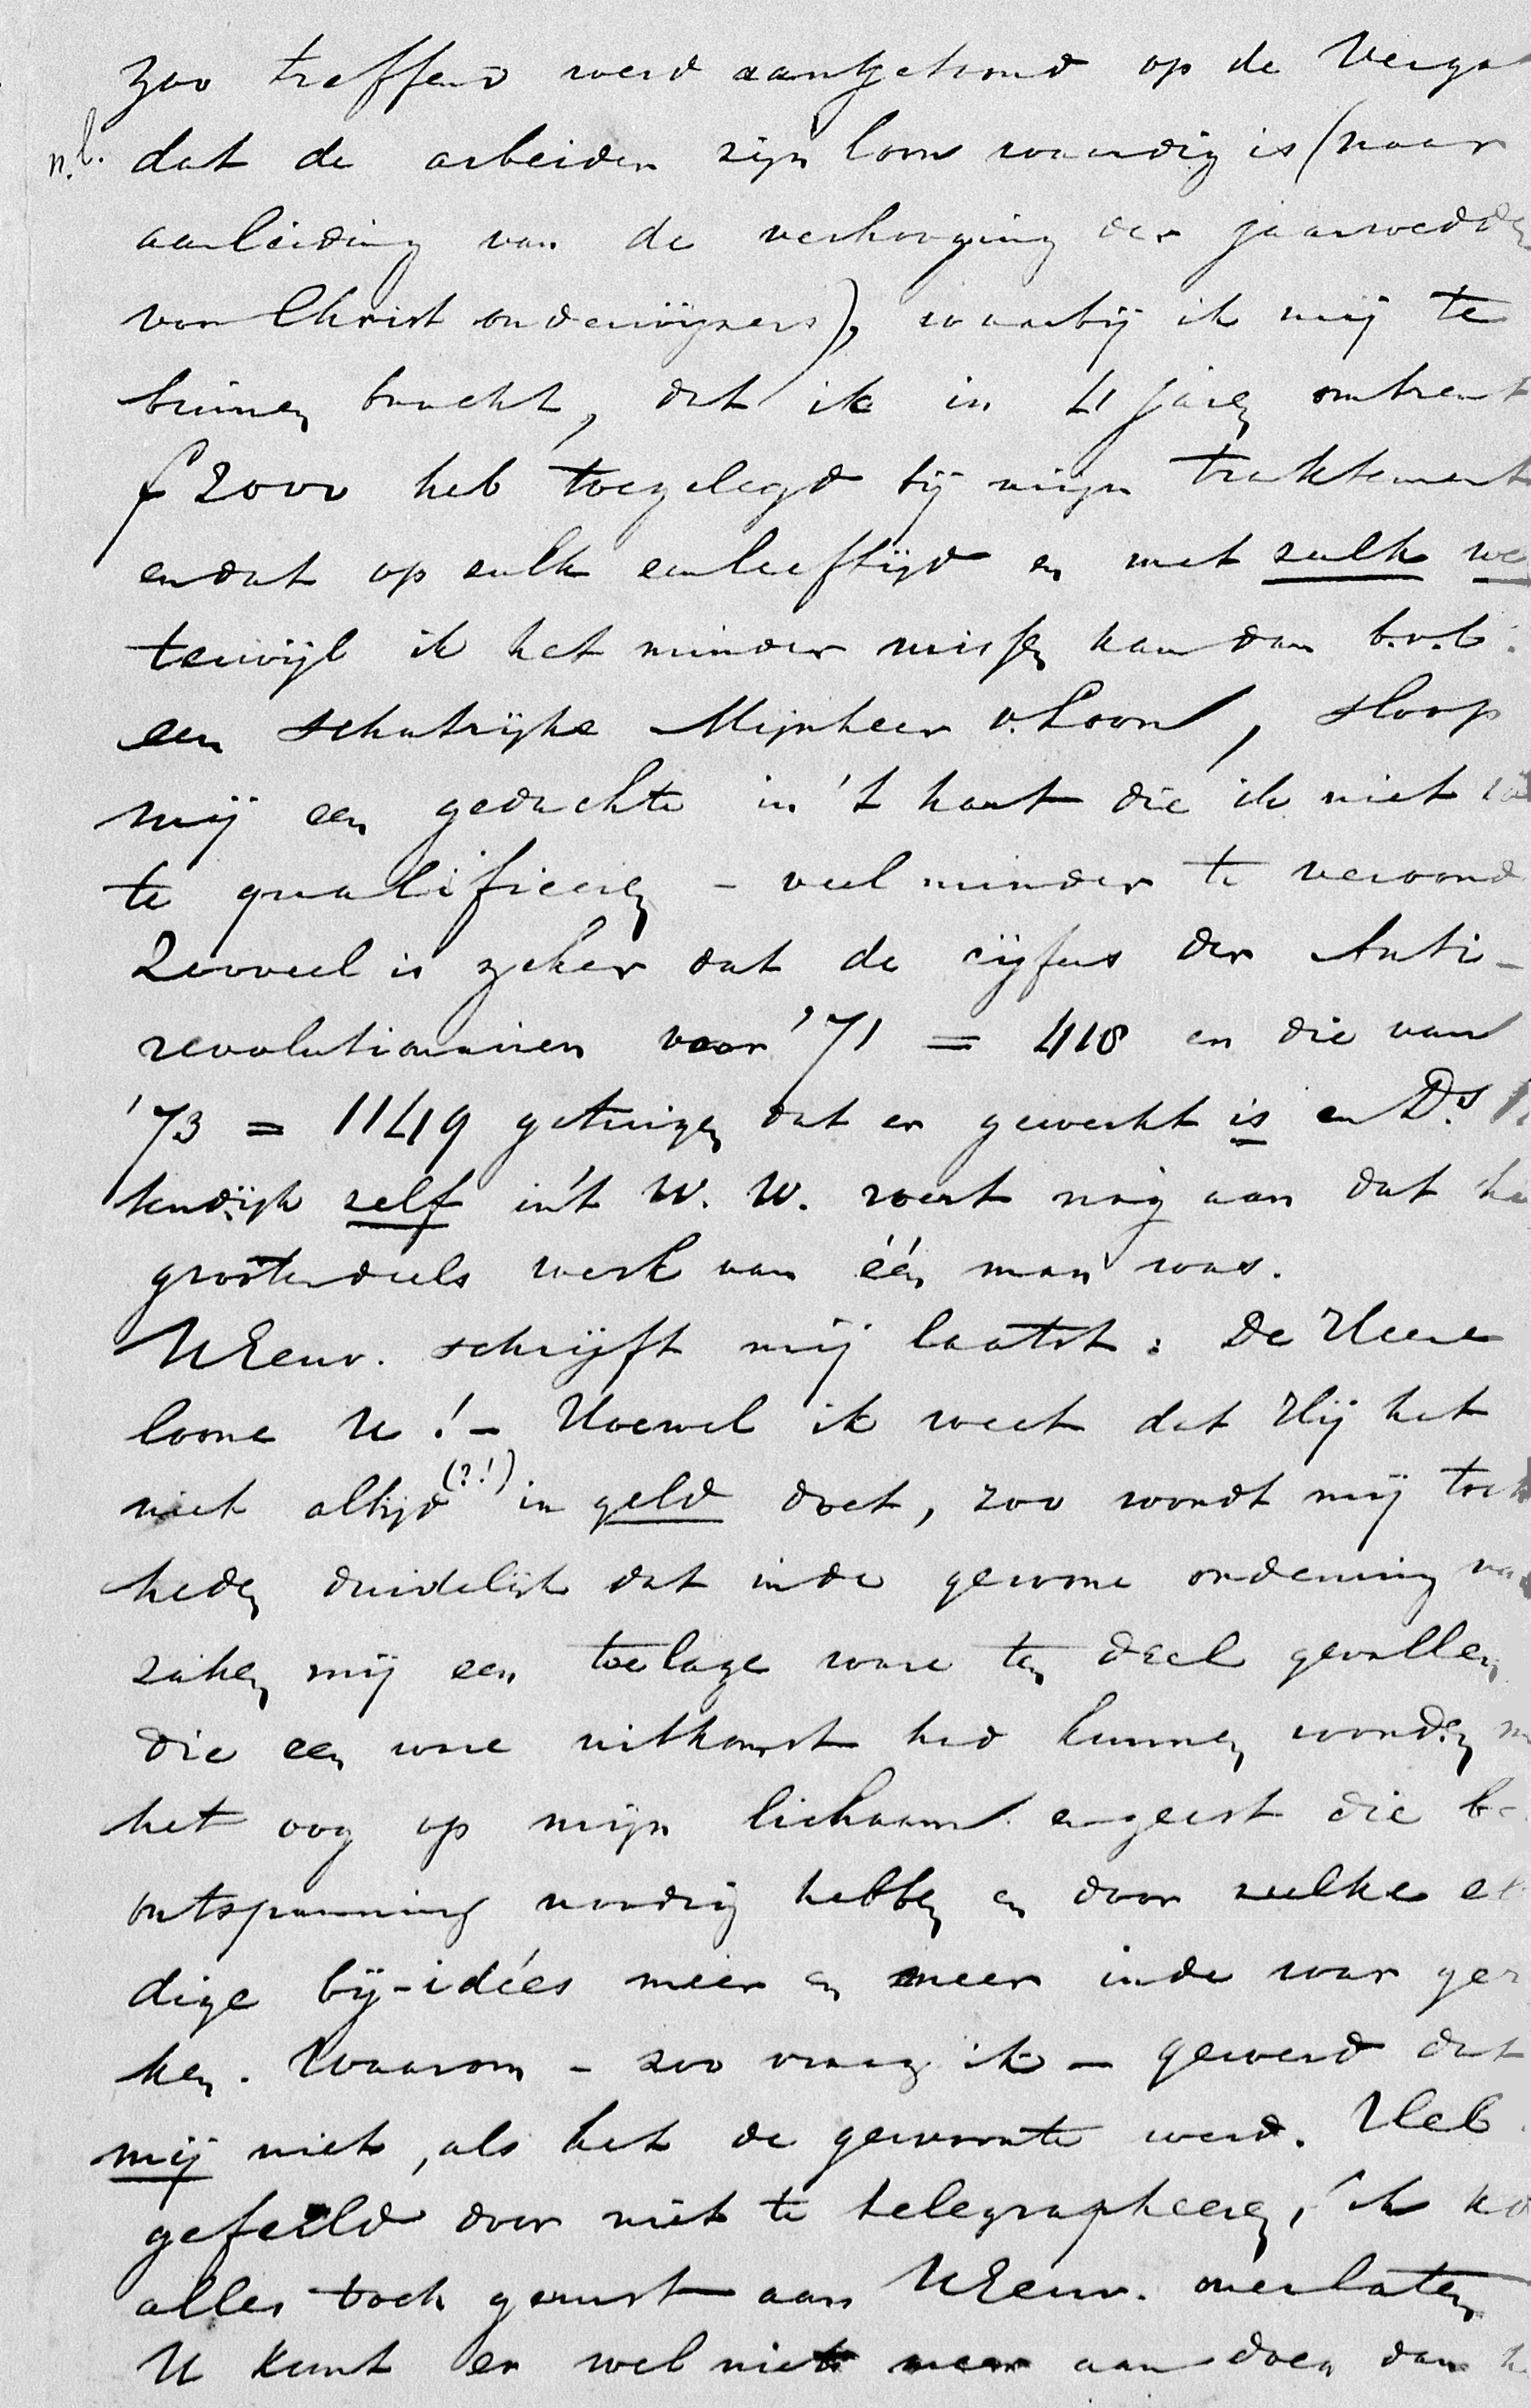 zoo treffend werd aangetoond op de Verga
n.l. dat de arbeider zijn loon waardig is (naar
aanleiding van de verhooging der jaarwedde
van Christ onderwijzers), waarbij ik mij te
binnen bracht, dat ik in 4 jaren omtrent
f 2000 heb toegelegd bij mijn traktement
en dat op zulk een leeftijd en met zulk we
terwijl ik het minder missen kan dan b.v.b.
een schatrijke Mijnheer v. Loon, sloop
mij een gedachte in 't hart die ik niet
te qualificeeren - veel minder te veroord
Zooveel is zeker dat de cijfers der Anti-
revolutionairen voor '71 = 418 en die van
'73 = 1149 getuigen dat er gewerkt is en Ds.
kendijk zelf in 't W. W. voert nog aan dat
grootendeels werk van één man was.
UEerw. schrijft mij laatst: De Heere
loone U! - Hoewel ik weet dat Hij het
niet altijd (?!) in geld doet, zoo wordt mij toch
heden duidelijk dat in de gewone ordening
zaken mij een toelage ware ten deel gevallen
die een ware uitkomst had kunnen worden
het oog op mijn lichaam en geest die
ontspanning noodig hebben en door zulke el
dige bij-idées meer en meer in de war ger
ken. Waarom - zoo vraag ik - gewerd dat
mij niet, als het de gewoonte werd. Heb
gefeild door niet te telegrapheeren, ik ko
alles toch gerust aan UEerw. overlaten
U kunt er wel niets meer aan doen dan